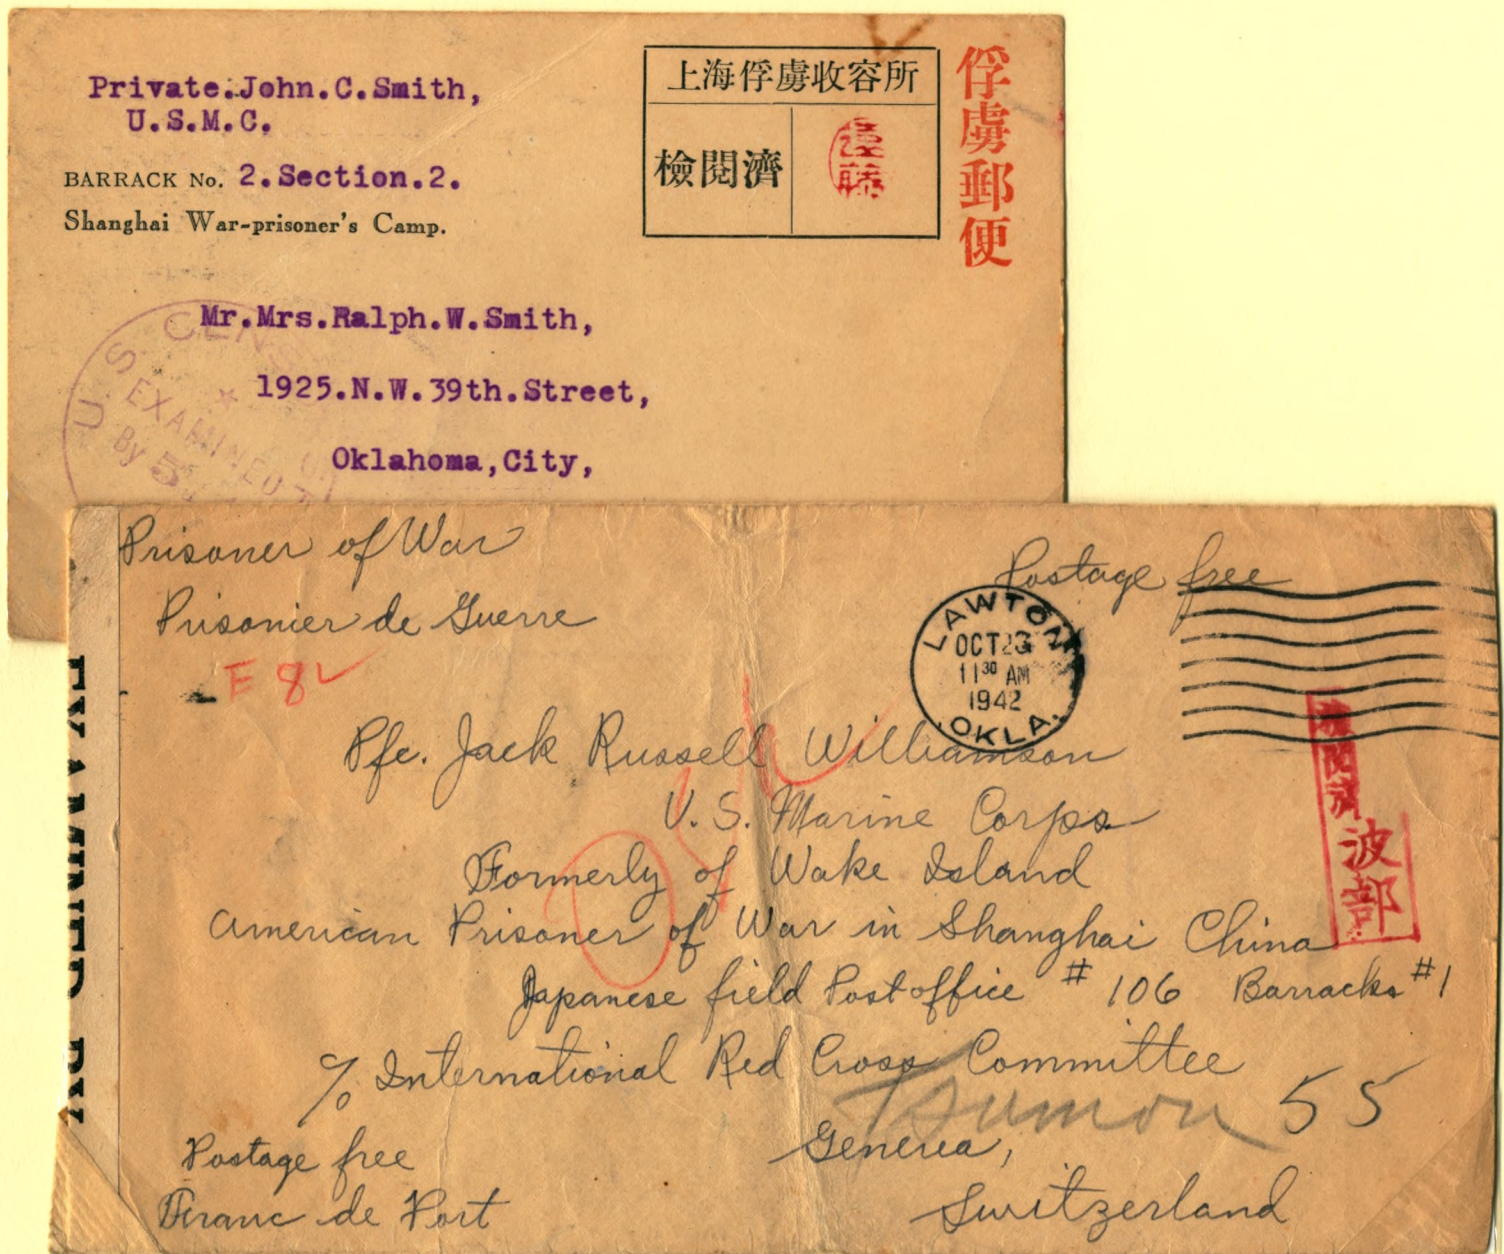 Private.John.C.Smith,
U.S.M.C.
BARRACK No. 2.Section.2.
Shanghai War-prisoner's Camp.
上海俘虜收容所
檢閲濟
俘虜郵便
Mr.Mrs.Ralph.W.Smith,
1925.N.W.39th.Street,
Oklahoma,City,
U.S. CENS
EXAMINED
By 5
Prisoner of War
Prisonier de Guerre
Postage free
E 82
LAWTON
OCT 23
11 30 AM
1942
OKLA.
Pfc. Jack Russell Williamson
U.S. Marine Corps
Formerly of Wake Island
American Prisoner of War in Shanghai China
Japanese field Postoffice # 106 Barracks #1
% International Red Cross Committee
55
Geneva,
Switzerland
Postage free
Franc de Port
波部
EXAMINED BY